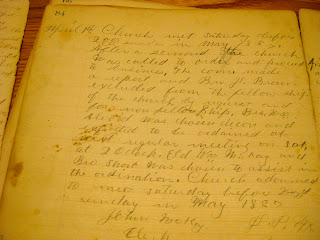 84
April 14 Church met Saturday before
2nd sunday in May 1887
After sermon the church
was called to order and proceed
to business. The comm made
a report on Bro J. Brown
excluded from the fellow ship
of the church by request and
for non fellowship, Bro. Wm
Short was chosen decon and
to be ordained at
next regular meeting on Sat,
at 2 Oclock. Eld Wm McKay and
Bro Short was chosen to assist in
the ordination. Church adjourned
to meet saturday before next
sunday in May 1887
John McKay
Clerk